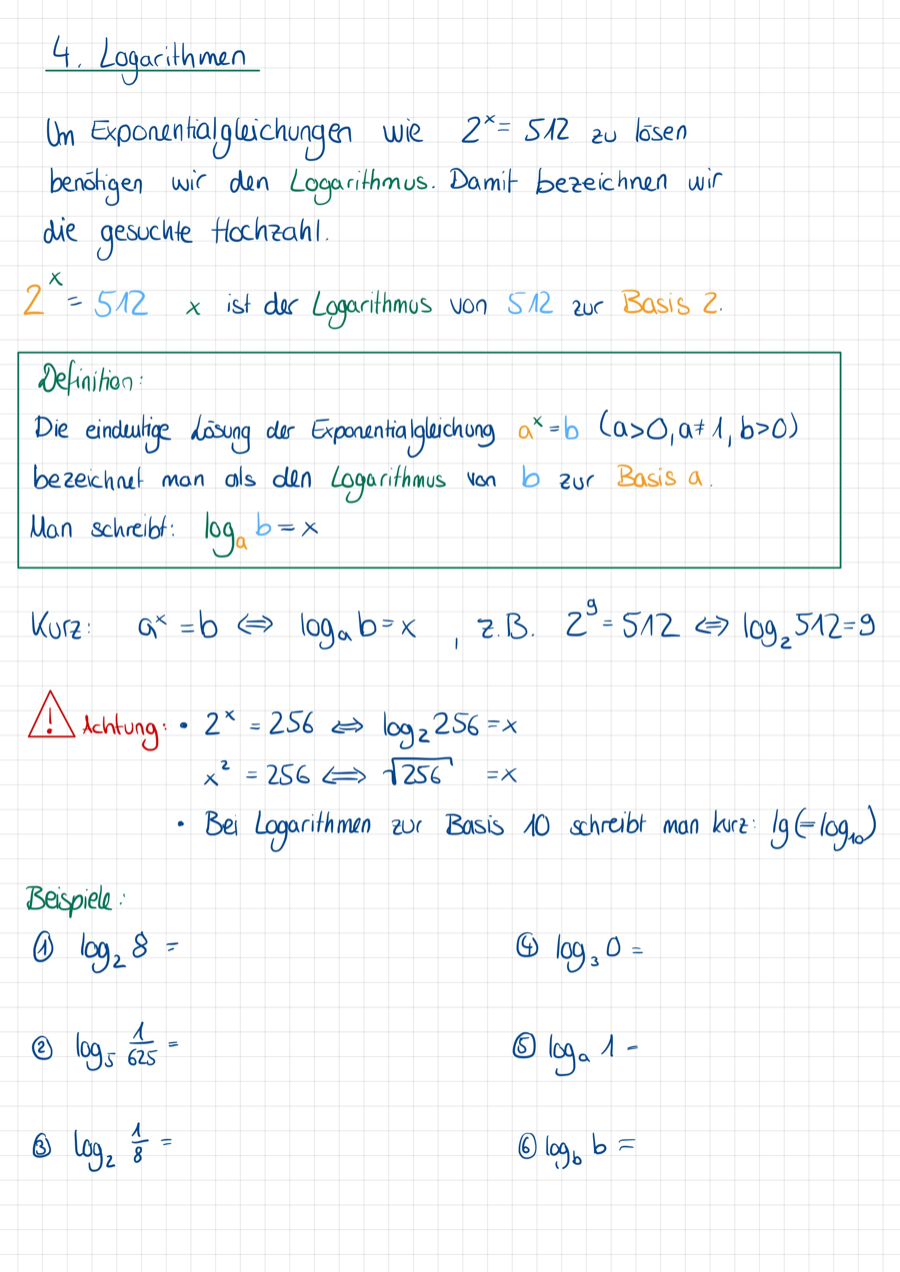 4. Logarithmen
Um Exponentialgleichungen wie 2ˣ = 512 zu lösen
benötigen wir den Logarithmus. Damit bezeichnen wir
die gesuchte Hochzahl.
2ˣ = 512 x ist der Logarithmus von 512 zur Basis 2.
Definition:
Die eindeutige Lösung der Exponentialgleichung aˣ = b (a>0, a≠1, b>0)
bezeichnet man als den Logarithmus von b zur Basis a.
Man schreibt: logₐ b = x
Kurz: aˣ = b ⇔ logₐ b = x , z.B. 2⁹ = 512 ⇔ log₂ 512 = 9
! Achtung: • 2ˣ = 256 ⇔ log₂ 256 = x
x² = 256 ⇔ √256 = x
• Bei Logarithmen zur Basis 10 schreibt man kurz: lg (= log₁₀)
Beispiele:
① log₂ 8 =
④ log₃ 0 =
② log₅ 1/625 =
⑤ logₐ 1 =
③ log₂ 1/8 =
⑥ log_b b =